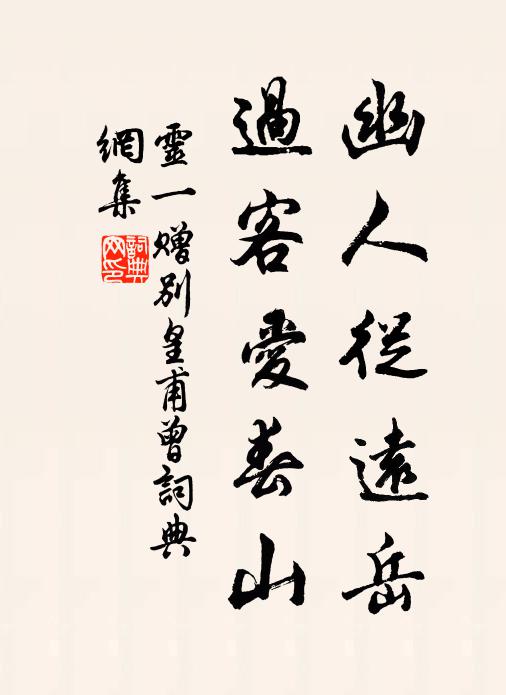 幽人從遠岳
過客愛春山
靈一贈別皇甫曾詞典
網集
詞典网印